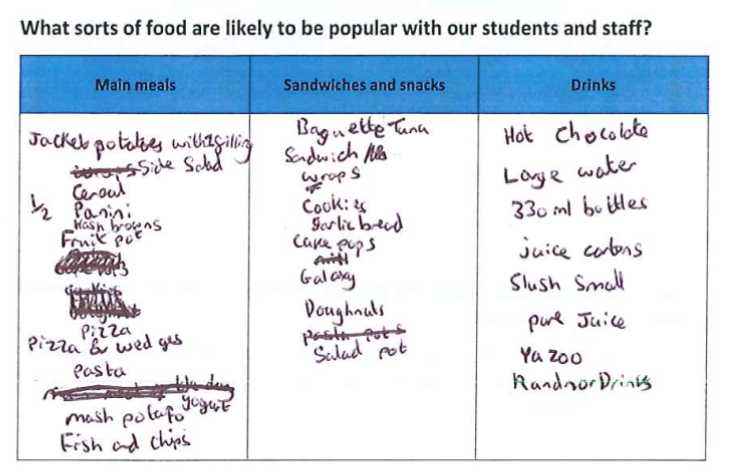 What sorts of food are likely to be popular with our students and staff?
Main meals
Jacket potatoes with 1 filling
Side Salad
Cereal
1/2 Panini
Hash browns
Fruit pot
Pizza
Pizza & wedges
Pasta
Yogurt
mash potato
Fish and chips
Sandwiches and snacks
Baguette Tuna
Sandwich
wraps
Cookies
garlic bread
Cake pops
Galaxy
Doughnuts
Pasta Pots
Salad pot
Drinks
Hot Chocolate
Large water
330 ml bottles
juice cartons
Slush Small
pure Juice
Yazoo
Randnor Drinks